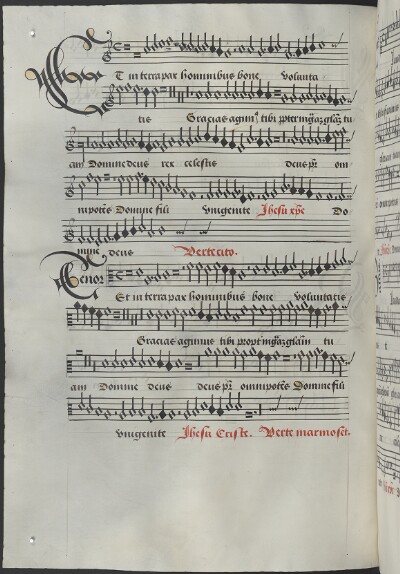 Et in terra pax hominibus bone volunta
tis Gracias agim9 tibi ppter mgaz glaz tu
am Domine deus rex celestis deus pr om
nipotes Domine fili vnigenite Jhesu xpe Do
mine deus Verte cito.
Tenor
Et in terra pax hominibus bone voluntatis
Gracias agimus tibi propt mgaz gliam tu
am Domine deus deus pr omnipotes Domine fili
vnigenite Jhesu Criste. Verte marmoset.